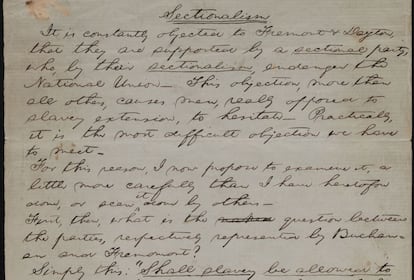 Sectionalism
It is constantly objected to Fremont & Dayton
that they are supported by a sectional party,
who, by their sectionalism, endanger the
National Union— This objection, more than
all others, causes men, really opposed to
slavery extension, to hesitate— Practically,
it is the most difficult objection we have
to meet—
For this reason, I now propose to examine it, a
little more carefully than I have heretofore
done, or seen it done by others—
First, then, what is the question between
the parties, respectively represented by Buchan-
an and Fremont?
Simply this: Shall slavery be allowed to